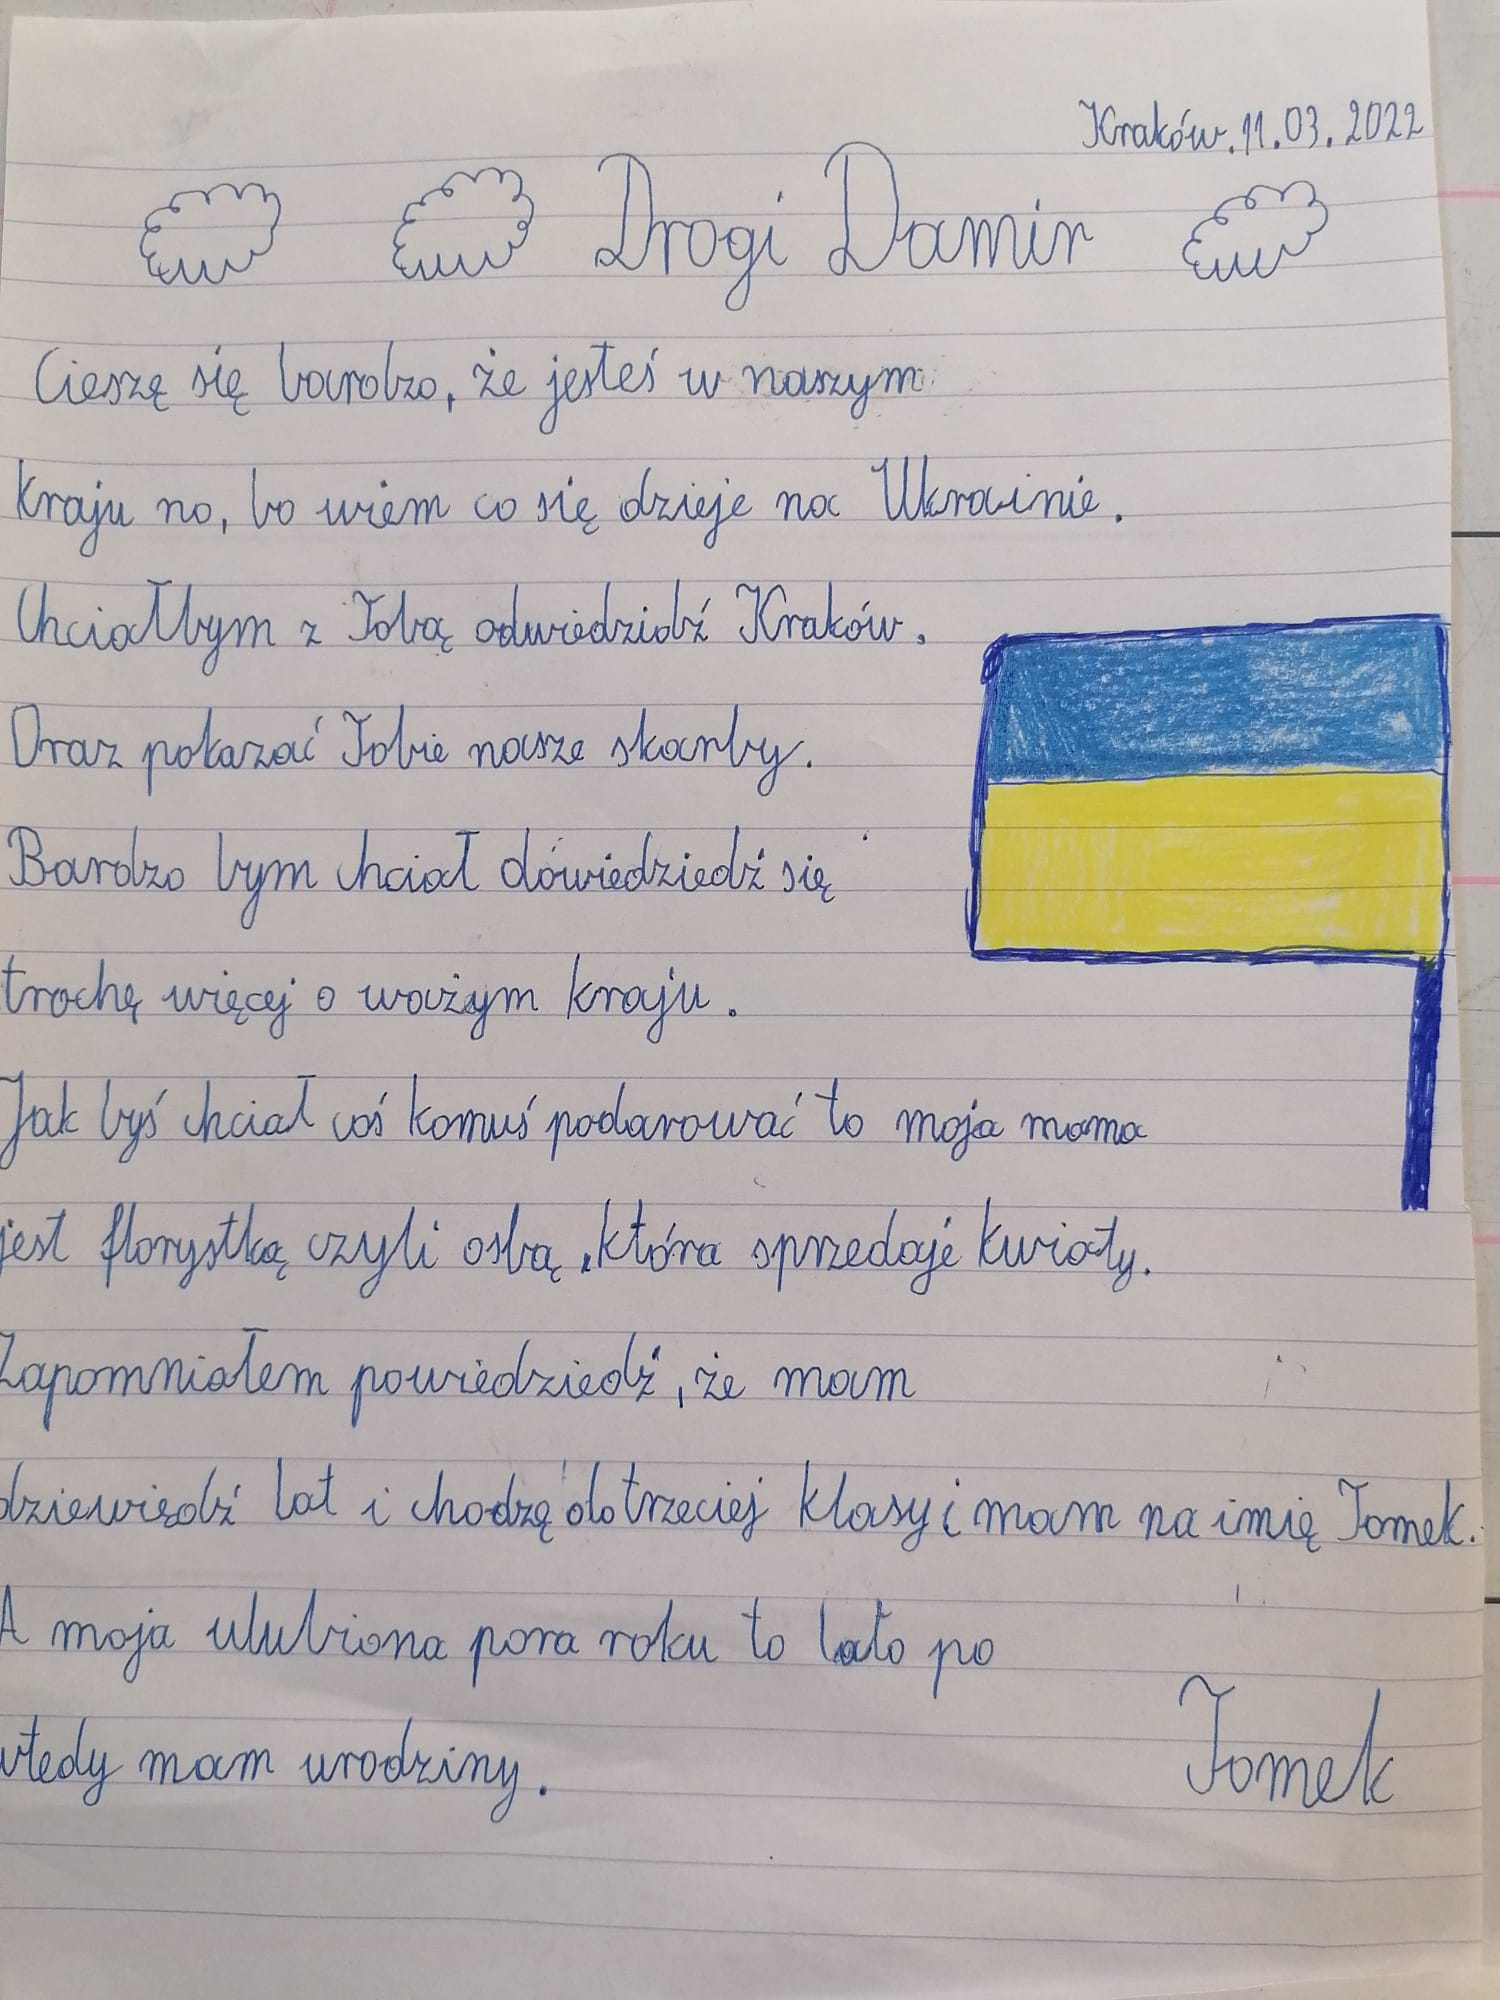 Kraków. 11.03.2022
Drogi Damir
Cieszę się bardzo, że jesteś w naszym
kraju no, bo wiem co się dzieje na Ukrainie.
Chciałbym z Tobą odwiedzidź Kraków.
Oraz pokazać Tobie nasze skarby.
Bardzo bym chciał dowiedziedź się
trochę więcej o ważym kraju.
Jak byś chciał coś komuś podarować to moja mama
jest florystką czyli osbą, która sprzedaje kwiaty.
Zapomniałem powiedziedź, że mam
dziewiędź lat i chodzę do trzeciej klasy i mam na imię Tomek.
A moja ulubiona pora roku to lato po
wtedy mam urodziny.
Tomek